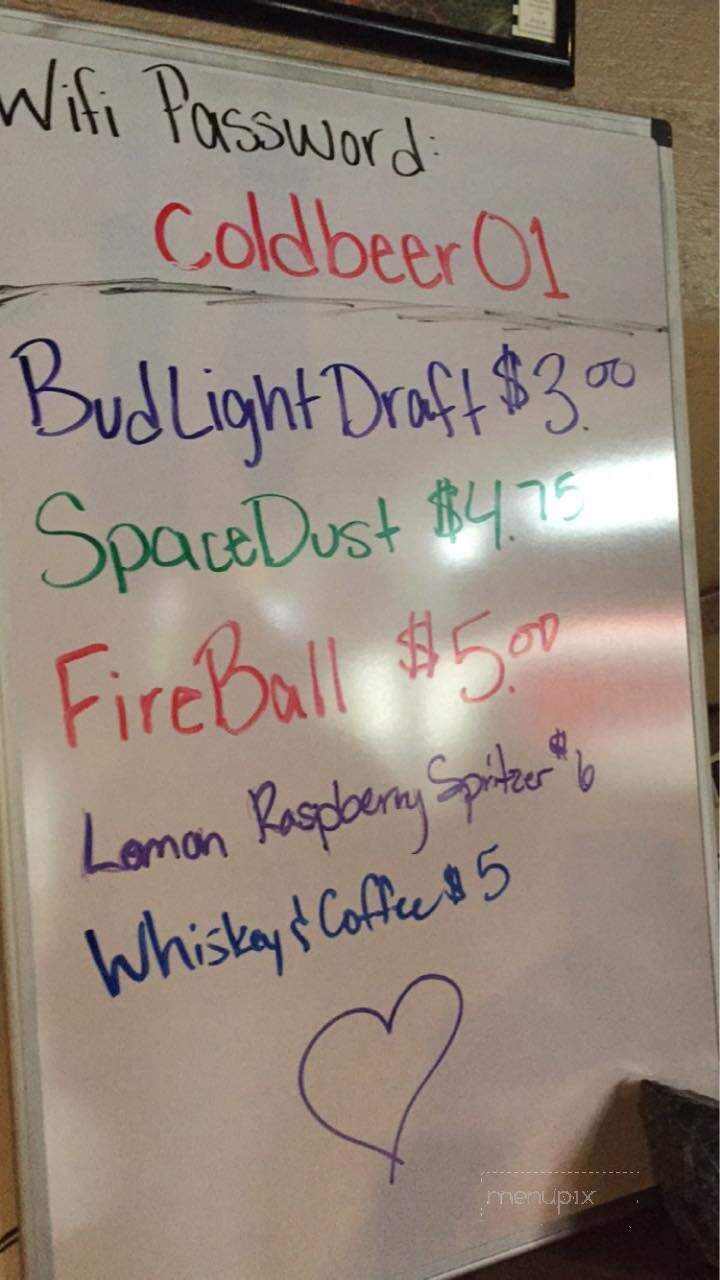 Wifi Password:
Coldbeer01
Bud Light Draft $3.00
Space Dust $4.75
FireBall $5.00
Lemon Raspberry Spritzer $6
Whiskey & Coffee $5
menupix